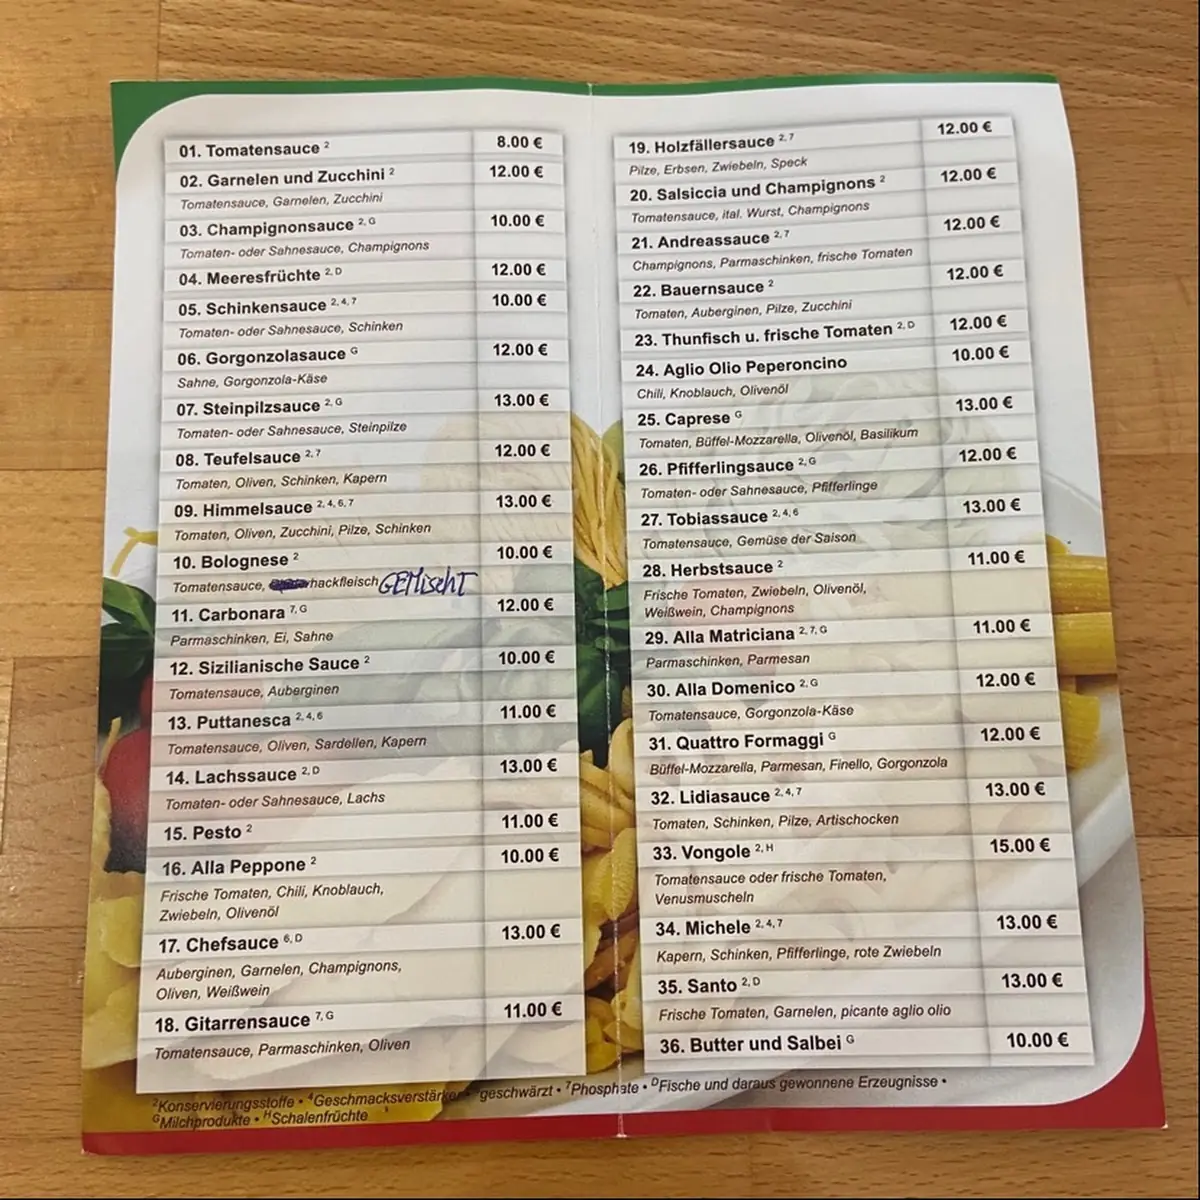 01. Tomatensauce ² 8.00 €
02. Garnelen und Zucchini ² 12.00 €
Tomatensauce, Garnelen, Zucchini
03. Champignonsauce ²,ᴳ 10.00 €
Tomaten- oder Sahnesauce, Champignons
04. Meeresfrüchte ²,ᴰ 12.00 €
05. Schinkensauce ²,⁴,⁷ 10.00 €
Tomaten- oder Sahnesauce, Schinken
06. Gorgonzolasauce ᴳ 12.00 €
Sahne, Gorgonzola-Käse
07. Steinpilzsauce ²,ᴳ 13.00 €
Tomaten- oder Sahnesauce, Steinpilze
08. Teufelsauce ²,⁷ 12.00 €
Tomaten, Oliven, Schinken, Kapern
09. Himmelsauce ²,⁴,⁶,⁷ 13.00 €
Tomaten, Oliven, Zucchini, Pilze, Schinken
10. Bolognese ² 10.00 €
Tomatensauce, hackfleisch GEMischT
11. Carbonara ⁷,ᴳ 12.00 €
Parmaschinken, Ei, Sahne
12. Sizilianische Sauce ² 10.00 €
Tomatensauce, Auberginen
13. Puttanesca ²,⁴,⁶ 11.00 €
Tomatensauce, Oliven, Sardellen, Kapern
14. Lachssauce ²,ᴰ 13.00 €
Tomaten- oder Sahnesauce, Lachs
15. Pesto ² 11.00 €
16. Alla Peppone ² 10.00 €
Frische Tomaten, Chili, Knoblauch,
Zwiebeln, Olivenöl
17. Chefsauce ⁶,ᴰ 13.00 €
Auberginen, Garnelen, Champignons,
Oliven, Weißwein
18. Gitarrensauce ⁷,ᴳ 11.00 €
Tomatensauce, Parmaschinken, Oliven
19. Holzfällersauce ²,⁷ 12.00 €
Pilze, Erbsen, Zwiebeln, Speck
20. Salsiccia und Champignons ² 12.00 €
Tomatensauce, ital. Wurst, Champignons
21. Andreassauce ²,⁷ 12.00 €
Champignons, Parmaschinken, frische Tomaten
22. Bauernsauce ² 12.00 €
Tomaten, Auberginen, Pilze, Zucchini
23. Thunfisch u. frische Tomaten ²,ᴰ 12.00 €
24. Aglio Olio Peperoncino 10.00 €
Chili, Knoblauch, Olivenöl
25. Caprese ᴳ 13.00 €
Tomaten, Büffel-Mozzarella, Olivenöl, Basilikum
26. Pfifferlingsauce ²,ᴳ 12.00 €
Tomaten- oder Sahnesauce, Pfifferlinge
27. Tobiassauce ²,⁴,⁶ 13.00 €
Tomatensauce, Gemüse der Saison
28. Herbstsauce ² 11.00 €
Frische Tomaten, Zwiebeln, Olivenöl,
Weißwein, Champignons
29. Alla Matriciana ²,⁷,ᴳ 11.00 €
Parmaschinken, Parmesan
30. Alla Domenico ²,ᴳ 12.00 €
Tomatensauce, Gorgonzola-Käse
31. Quattro Formaggi ᴳ 12.00 €
Büffel-Mozzarella, Parmesan, Finello, Gorgonzola
32. Lidiasauce ²,⁴,⁷ 13.00 €
Tomaten, Schinken, Pilze, Artischocken
33. Vongole ²,ᴴ 15.00 €
Tomatensauce oder frische Tomaten,
Venusmuscheln
34. Michele ²,⁴,⁷ 13.00 €
Kapern, Schinken, Pfifferlinge, rote Zwiebeln
35. Santo ²,ᴰ 13.00 €
Frische Tomaten, Garnelen, picante aglio olio
36. Butter und Salbei ᴳ 10.00 €
²Konservierungsstoffe • ⁴Geschmacksverstärker geschwärzt • ⁷Phosphate • ᴰFische und daraus gewonnene Erzeugnisse •
ᴳMilchprodukte • ᴴSchalenfrüchte